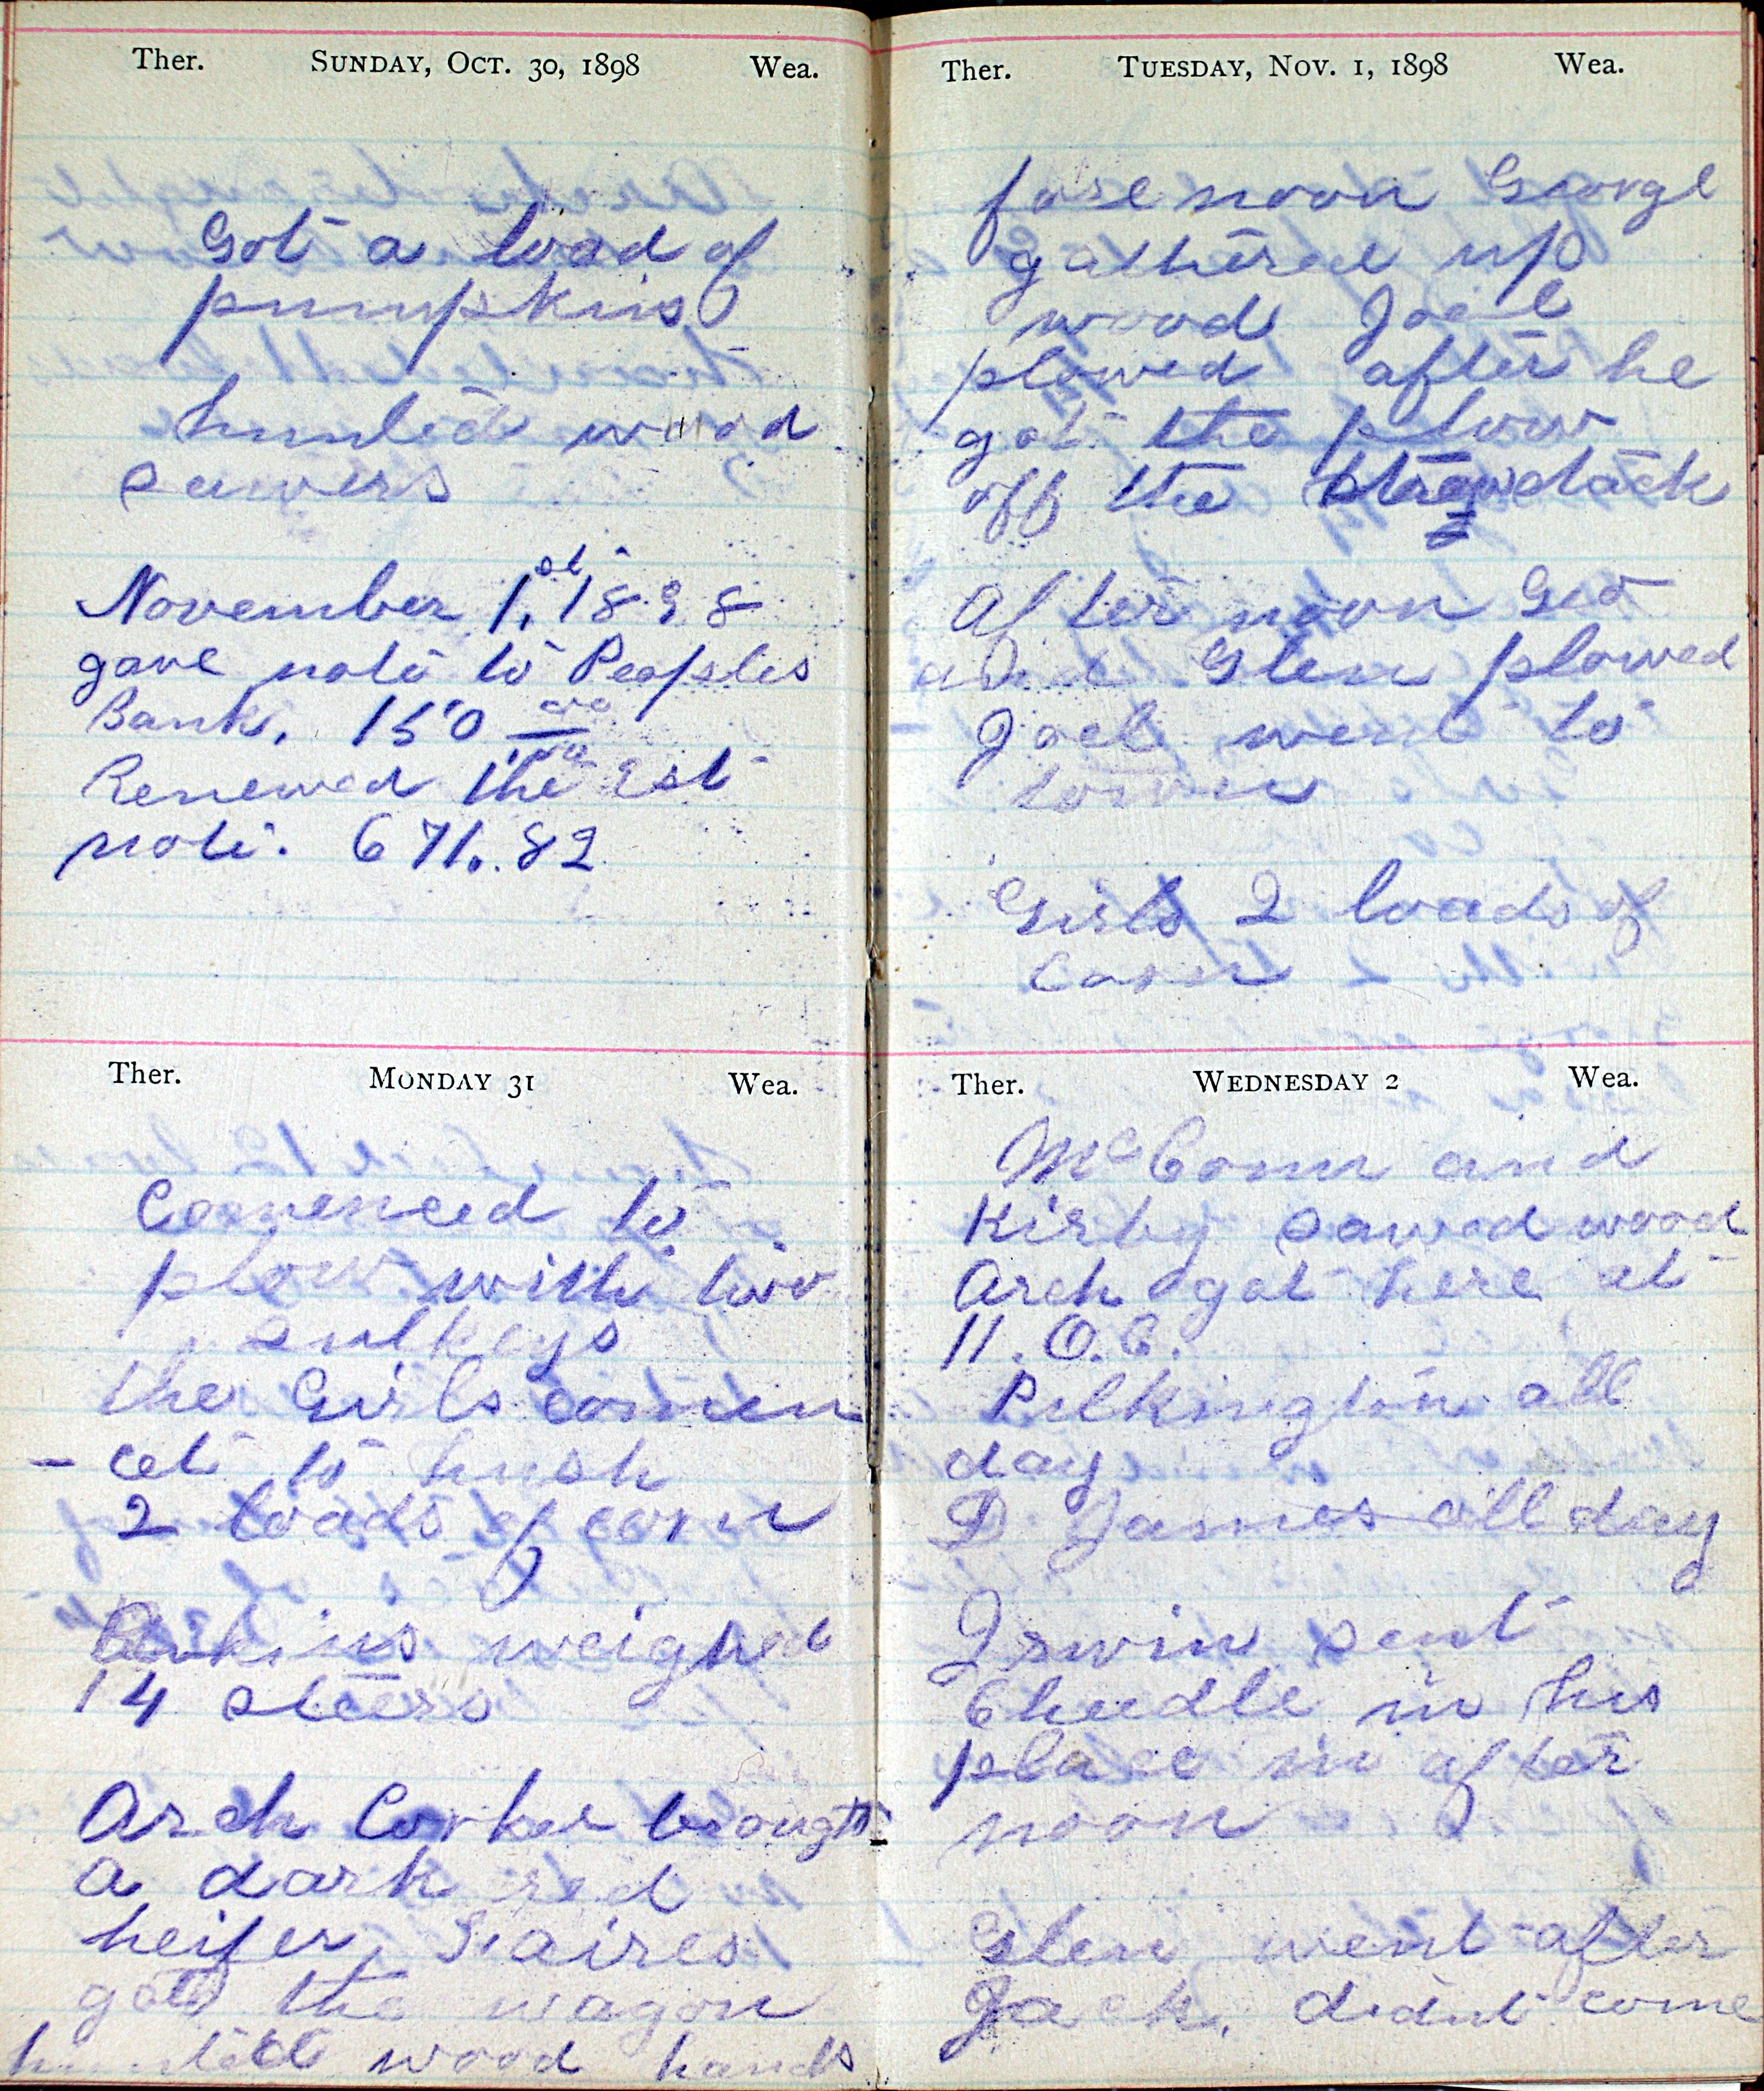 Ther. SUNDAY, OCT. 30, 1898 Wea.
Got a load of
pumpkins
hunted wood
sawers
November 1,st 1898
gave note to Peoples
Bank, 150 00/00
Renewed the Est
note. 671.82
Ther. MONDAY 31 Wea.
Comenced to
plow with two
sulkeys
the Girls comen
- cet to hush
2 loads of corn
weighed
14 steers
Arch Corker brought
a dark red
heifer,
got the wagon
hunted wood hands
Ther. TUESDAY, NOV. 1, 1898 Wea.
fore noon George
gathered up
wood Joel
plowed after he
got the plow
off the straw stack
After noon Geo
and Glen plowed
Joel went to
town
Girls 2 loads of
Corn
Ther. WEDNESDAY 2 Wea.
McComn and
Kirby sawed wood
Arch got here at
11. O.C.
Pilkington all
day
D. James all day
Irwin sent
Cheedle in his
place in after
noon
Glen went after
Jack, didnt come